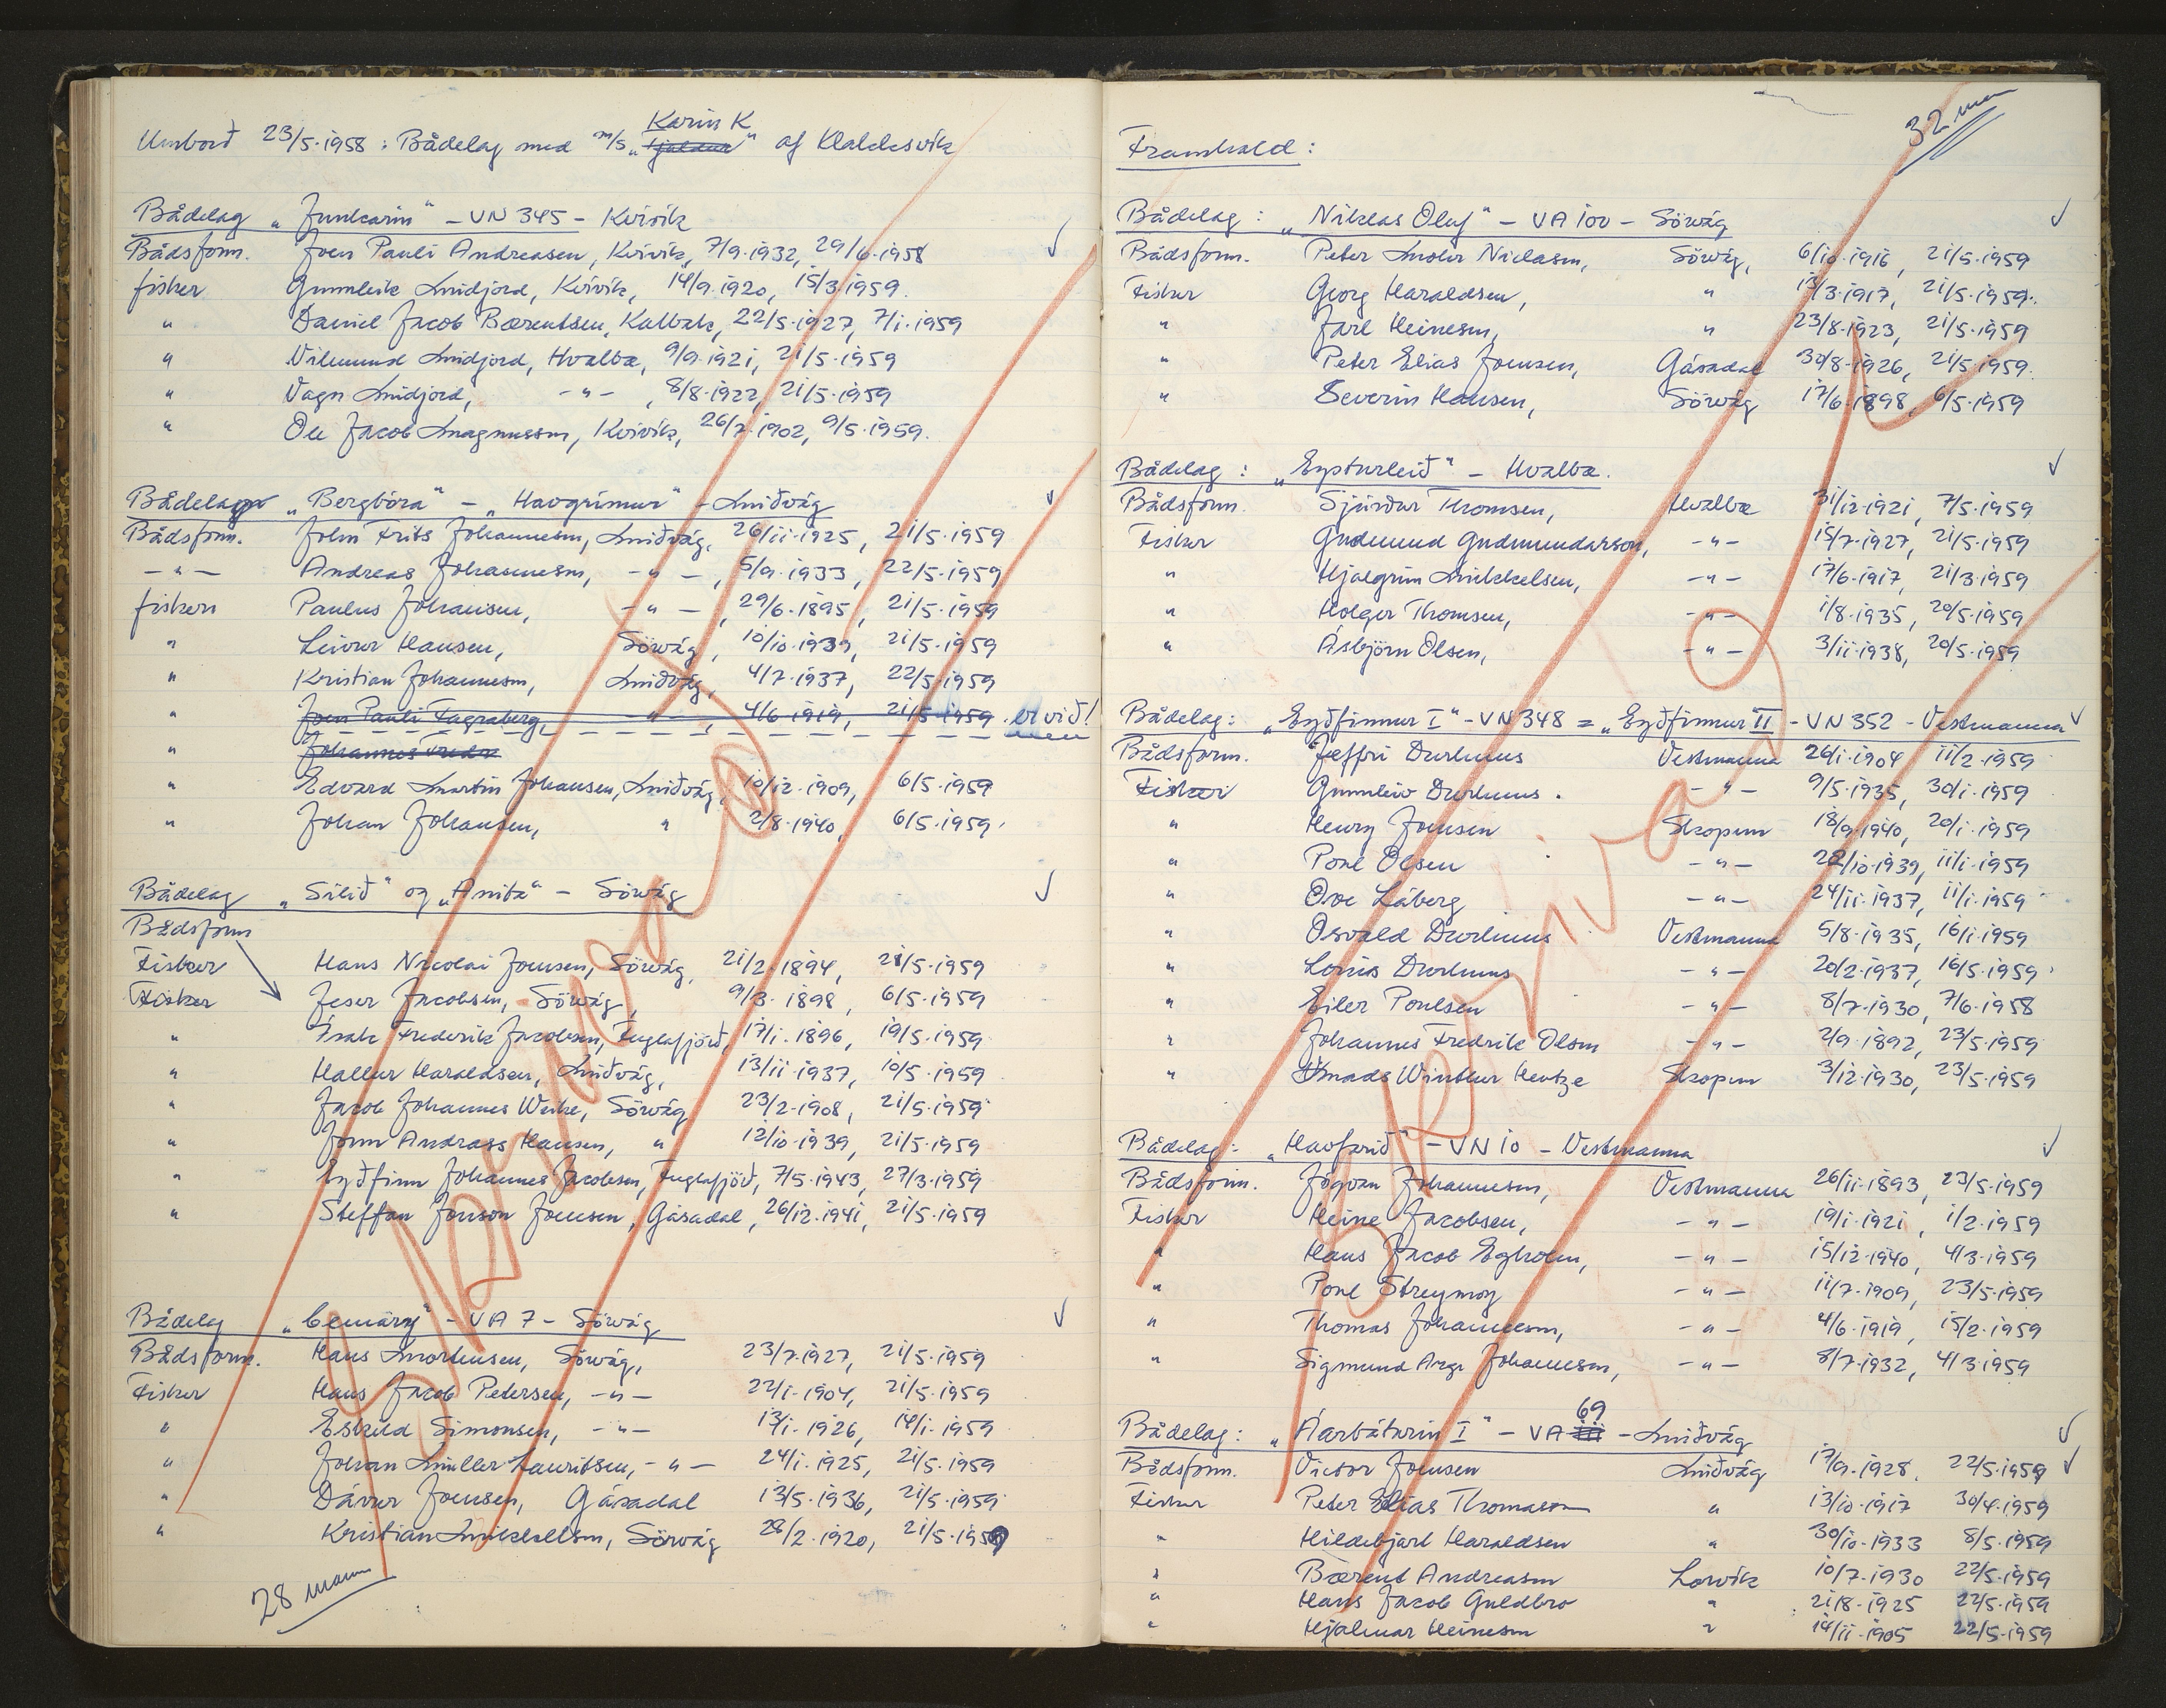 Umborð 23/5-1958 : Bådelag med m/s „Tjaldur“ Karin K af Klaksvík
Bådelag „Junkarin“ - VN 345 - Kvívík
Bådsform. Joen Pauli Andreasen, Kvívík, 7/9-1932, 29/6-1958
fisker Gunnleik Midjord, Kvívík, 14/9-1920, 15/3-1959.
" Daniel Jacob Bærentsen, Kalbak, 22/5-1927, 7/1-1959
" Vilmund Midjord, Hvalba, 9/9-1921, 21/5-1959
" Vagn Midjord, -"- , 8/8-1922, 21/5-1959
" Ole Jacob Magnussen, Kvívík, 26/7-1902, 9/5-1959.
Bådelag „Bergbóra“ - „Havgrímur“ - Miðvág
Bådsform. John Frits Johannesen, Miðvág, 26/11-1925, 21/5-1959
-"- Andreas Johannesen, -"-, 5/9-1933, 22/5-1959
fiskeri Paulus Johansen, -"-, 29/6-1895, 21/5-1959
" Leivur Hansen, Sörvág, 10/10-1939, 21/5-1959
" Kristian Johannesen, Miðvág, 4/7-1937, 22/5-1959
" Joen Pauli Fagraberg, -"-, 4/6-1919, 21/5-1959. er við!
" Johannes
" Edvard Martin Johansen, Miðvág, 10/12-1909, 6/5-1959
" Johan Johansen, " 2/8-1940, 6/5-1959.
Bådelag „Sílið“ og „Anita“ - Sörvág
Bådsform
Fisker Hans Nicolai Joensen, Sörvág, 21/2-1894, 21/5-1959
Fisker Jeser Jacobsen, Sörvág, 9/3-1898, 6/5-1959
" Ísak Frederik Jacobsen, Fuglafjörð, 17/1-1896, 19/5-1959
" Hallur Haraldsen, Miðvág, 13/11-1937, 10/5-1959
" Jacob Johannes Weihe, Sörvág 23/2-1908, 21/5-1959
" Jonn Andrass Hansen, " 12/10-1939, 21/5-1959
" Eyðfinn Johannes Jacobsen, Fuglafjörð, 7/5-1943, 27/3-1959
" Steffan Jonson Joensen, Gásadal, 26/12-1941, 21/5-1959
Bådelag „Gemäry“ - VA 7 - Sörvág
Bådsform. Hans Mortensen, Sörvág, 23/7-1927, 21/5-1959
Fisker Hans Jacob Petersen, -"- 22/1-1904, 21/5-1959
" Eskild Simonsen, -"- 13/1-1926, 14/1-1959
" Johan Müller Lauritsen, -"- 24/1-1925, 21/5-1959
" Dávur Joensen, Gásadal 13/5-1936, 21/5-1959
" Kristian Mikkelsen, Sörvág 28/2-1920, 21/5-1959
28 mann
Avmynstrað
32 mann
Framhald :
Bådelag : „Niklas Oluf“ - VA 100 - Sörvág
Bådsform. Peter Mohr Niclasen, Sörvág, 6/10-1916, 21/5-1959
Fisker Georg Haraldsen, " 13/3-1917, 21/5-1959.
" Jarl Heinesen, " 23/8-1923, 21/5-1959
" Peter Elias Joensen, Gásadal 30/8-1926, 21/5-1959.
" Severin Hansen, Sörvág 17/6-1898, 6/5-1959
Bådelag : „Eysturleið“ - Hvalba.
Bådsform. Sjúrður Thomsen, Hvalba 31/12-1921, 7/5-1959
Fisker Gudmund Gudmundarson, -"- 15/7-1927, 21/5-1959
" Hjalgrim Mikkelsen, -"- 17/6-1917, 21/3-1959
" Holger Thomsen, -"- 1/8-1935, 20/5-1959
" Ásbjörn Olsen, -"- 3/11-1938, 20/5-1959
Bådelag : „Eyðfinnur I“ - VN 348 = „Eyðfinnur II - VN 352 - Vestmanna
Bådsform. Jeffri Durhuus Vestmanna 26/1-1904 11/2-1959
Fisker Gunnleiv Durhuus. -"- 9/5-1935, 30/1-1959
" Henry Joensen Skopun 18/9-1940, 20/1-1959
" Poul Olsen -"- 22/10-1939, 11/1-1959
" Ove Láberg -"- 24/11-1937, 11/1-1959
" Osvald Durhuus Vestmanna 5/8-1935, 16/1-1959
" Louis Durhuus -"- 20/2-1937, 16/5-1959
" Eiler Poulsen -"- 8/7-1930, 7/6-1958
" Johannes Fredrik Olsen -"- 2/9-1892, 23/5-1959
" Mads Winther Hentze Skopun 3/12-1930, 23/5-1959
Bådelag : „Havfrið“ - VN 10 - Vestmanna
Bådsform. Jógvan Johannesen, Vestmanna 26/11-1893, 23/5-1959
Fisker Heine Jacobsen, -"- 19/1-1921, 1/2-1959
" Hans Jacob Egholm, -"- 15/12-1940, 4/3-1959
" Poul Streymoy -"- 11/7-1909, 23/5-1959
" Thomas Johannesen, -"- 4/6-1919, 15/2-1959
" Sigmund Arge Johannesen, -"- 8/7-1932, 4/3-1959
Bådelag : „Áarbáturin I“ - VA 111 69 - Miðvág
Bådsform. Victor Joensen Miðvág 17/9-1928, 22/5-1959
Fisker Peter Elias Thomasen " 13/10-1917 30/4-1959
" Hildibjart Haraldsen " 30/10-1933 8/5-1959
" Bærent Andreasen Lorvík 10/7-1930 22/5-1959
" Hans Jacob Guldbro " 21/8-1925 22/5-1959
" Hjalmar Heinesen " 14/11-1905 22/5-1959